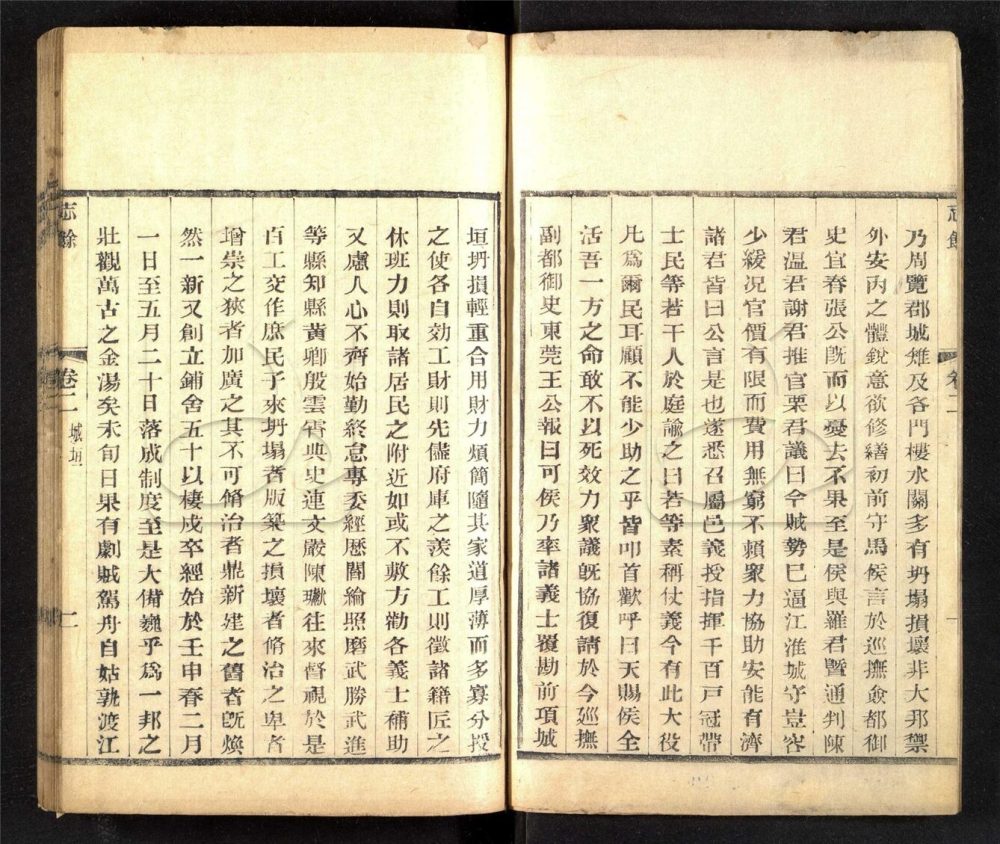 志餘
卷二
乃周覽郡城雉及各門樓水關多有坍塌損壞非大那禦
外安內之體銳意欲修繕初前守馬侯言於巡撫僉都御
史宜春張公既而以憂去不果至是侯與羅君暨通判陳
君溫君謝君推官栗君議曰今賊勢已逼江淮城守豈容
少緩況官價有限而費用無窮不賴眾力協助安能有濟
諸君皆曰公言是也遂悉召屬邑義授指揮千百戸冠帶
士民等若干人於庭諭之曰若等素稱仗義今有此大役
凡爲爾民耳顧不能少助之乎皆叩首歡呼曰天賜侯全
活吾一方之命敢不以死效力眾議既協復請於今巡撫
副都御史東莞王公報曰可侯乃率諸義士覆勘前項城
垣坍損輕重合用財力煩簡隨其家道厚薄而多寡分授
之使各自効工財則先儘府庫之羨餘工則徵諸籍匠之
休班力則取諸居民之附近如或不敷方勸各義士補助
又慮人心不齊始勤終怠專委經歷閻綸照磨武勝武進
等縣知縣黃卿殷雲霄典史連文嚴陳瓛往來督視於是
百工交作庶民子來坍塌者版築之損壞者脩治之卑者
增崇之狹者加廣之其不可脩治者鼎新建之舊者既煥
然一新又創立鋪舍五十以棲戍卒經始於壬申春二月
一日至五月二十日落成制度至是大備巍乎爲一邦之
壯觀萬古之金湯矣未旬日果有劇賊駕舟自姑孰渡江
志餘
卷二
城垣
二